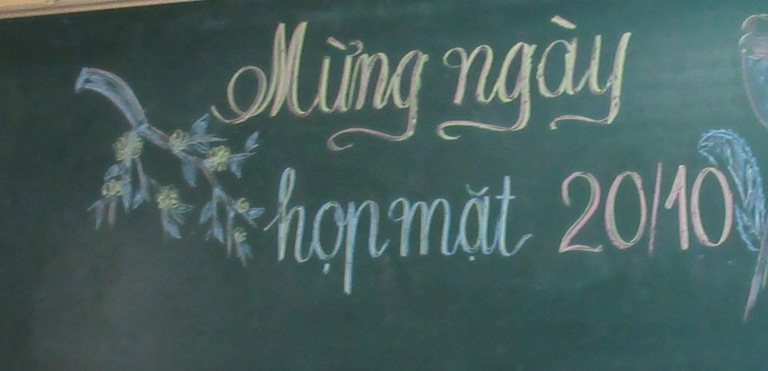 Mừng ngày
họp mặt 20/10